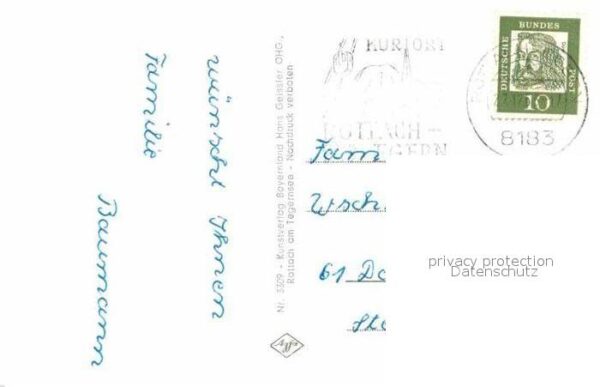 wünscht Ihnen
Familie
Baumann
Nr. 3309 - Kunstverlag Bayernland Hans Geissler OHG.,
Rottach am Tegernsee - Nachdruck verboten
Agfa
KURORT
ROTTACH-
EGERN
DEUTSCHE BUNDES POST
10
8183
Fam
61 Da
privacy protection
Datenschutz